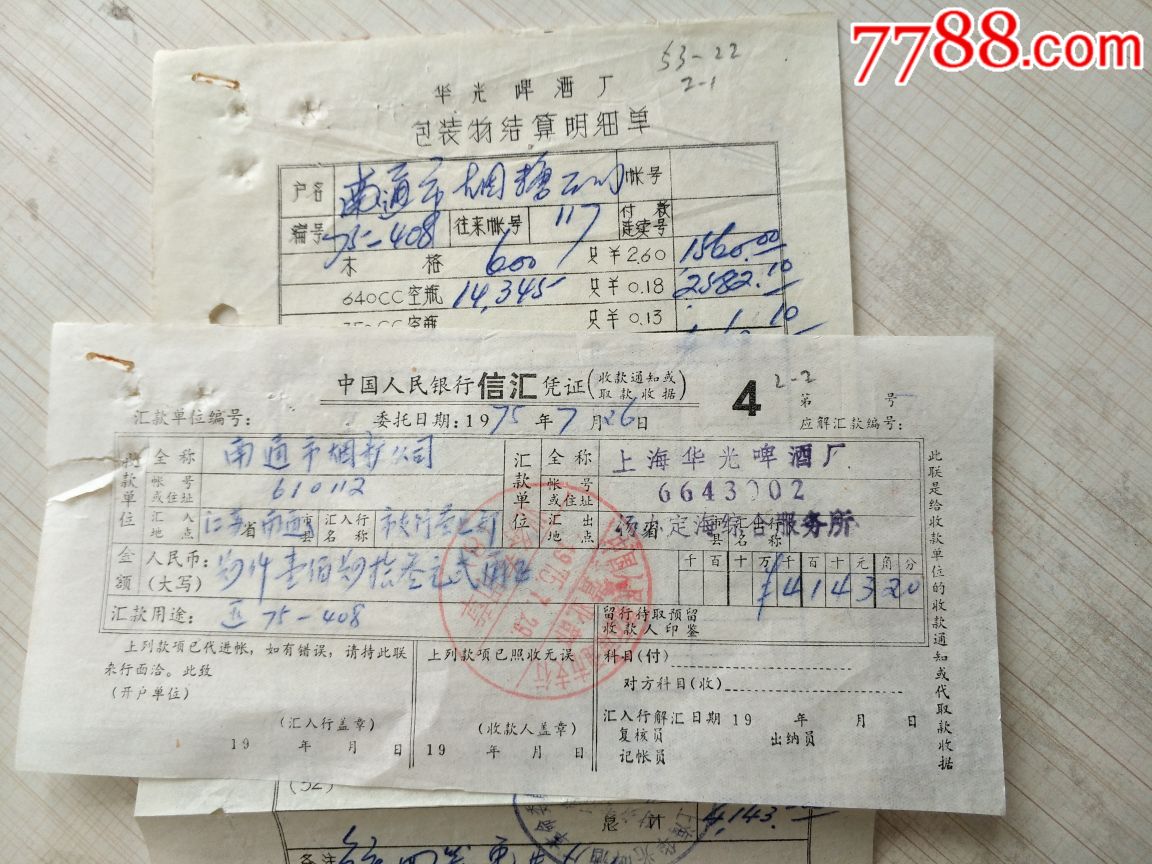 7788.com
53-22
2-1
华光啤酒厂
包装物结算明细单
户名 南通市烟糖公司 帐号
编号 75-408 往来帐号 117 付款连续号
木格 600 只¥2.60 1560.00
640CC空瓶 14,345 只¥0.18 2582.10
350CC空瓶 只¥0.13
中国人民银行信汇凭证(收款通知或取款收据) 4 2-2 第 号
汇款单位编号: 委托日期:1975年7月26日 应解汇款编号:
收款单位 全称 南通市烟糖公司 汇款单位 全称 上海华光啤酒厂
帐号或住址 610112 帐号或住址 6643002
汇入地点 江苏省南通市县 汇入行名称 汇出地点 省市县 汇出行名称 定海综合服务所
金额 人民币:(大写) 肆仟壹佰肆拾叁元 千百十万千百十元角分 ¥414320
汇款用途: 75-408 留行待取预留收款人印鉴
上列款项已代进帐，如有错误，请持此联来行面洽。此致
(开户单位)
(汇入行盖章)
19 年 月 日
上列款项已照收无误
(收款人盖章)
19 年 月 日
科目(付)
对方科目(收)
汇入行解汇日期 19 年 月 日
复核员 出纳员
记帐员
此联是给收款单位的收款通知或代取款收据
1975.7.29
(32)
总计 4,143.
备注